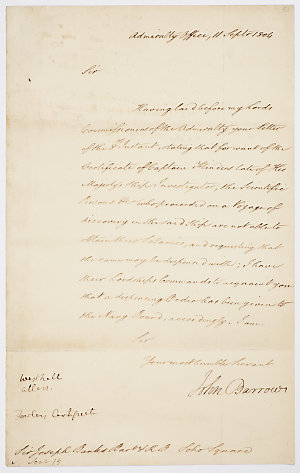 Admiralty Office, 11 Septr 1804
Sir
Having laid before my Lords
Commissioners of the Admiralty your letter
of the 8th Instant, stating that for want of the
Certificate of Captain Flinders late of His
Majesty's Ship Investigator, the Scientific
Persons &c who proceeded on a Voyage of
discovery in the said Ship are not able to
obtain their Salaries, and requesting that
the same may be dispensed with; I have
their Lordships commands to acquaint you
that a dispensing Order has been given to
the Navy Board, accordingly. I am
Sir
Your most humble Servant
John Barrow
Westhall
Allen
Sir Joseph Banks Bart & K.B. Soho Square